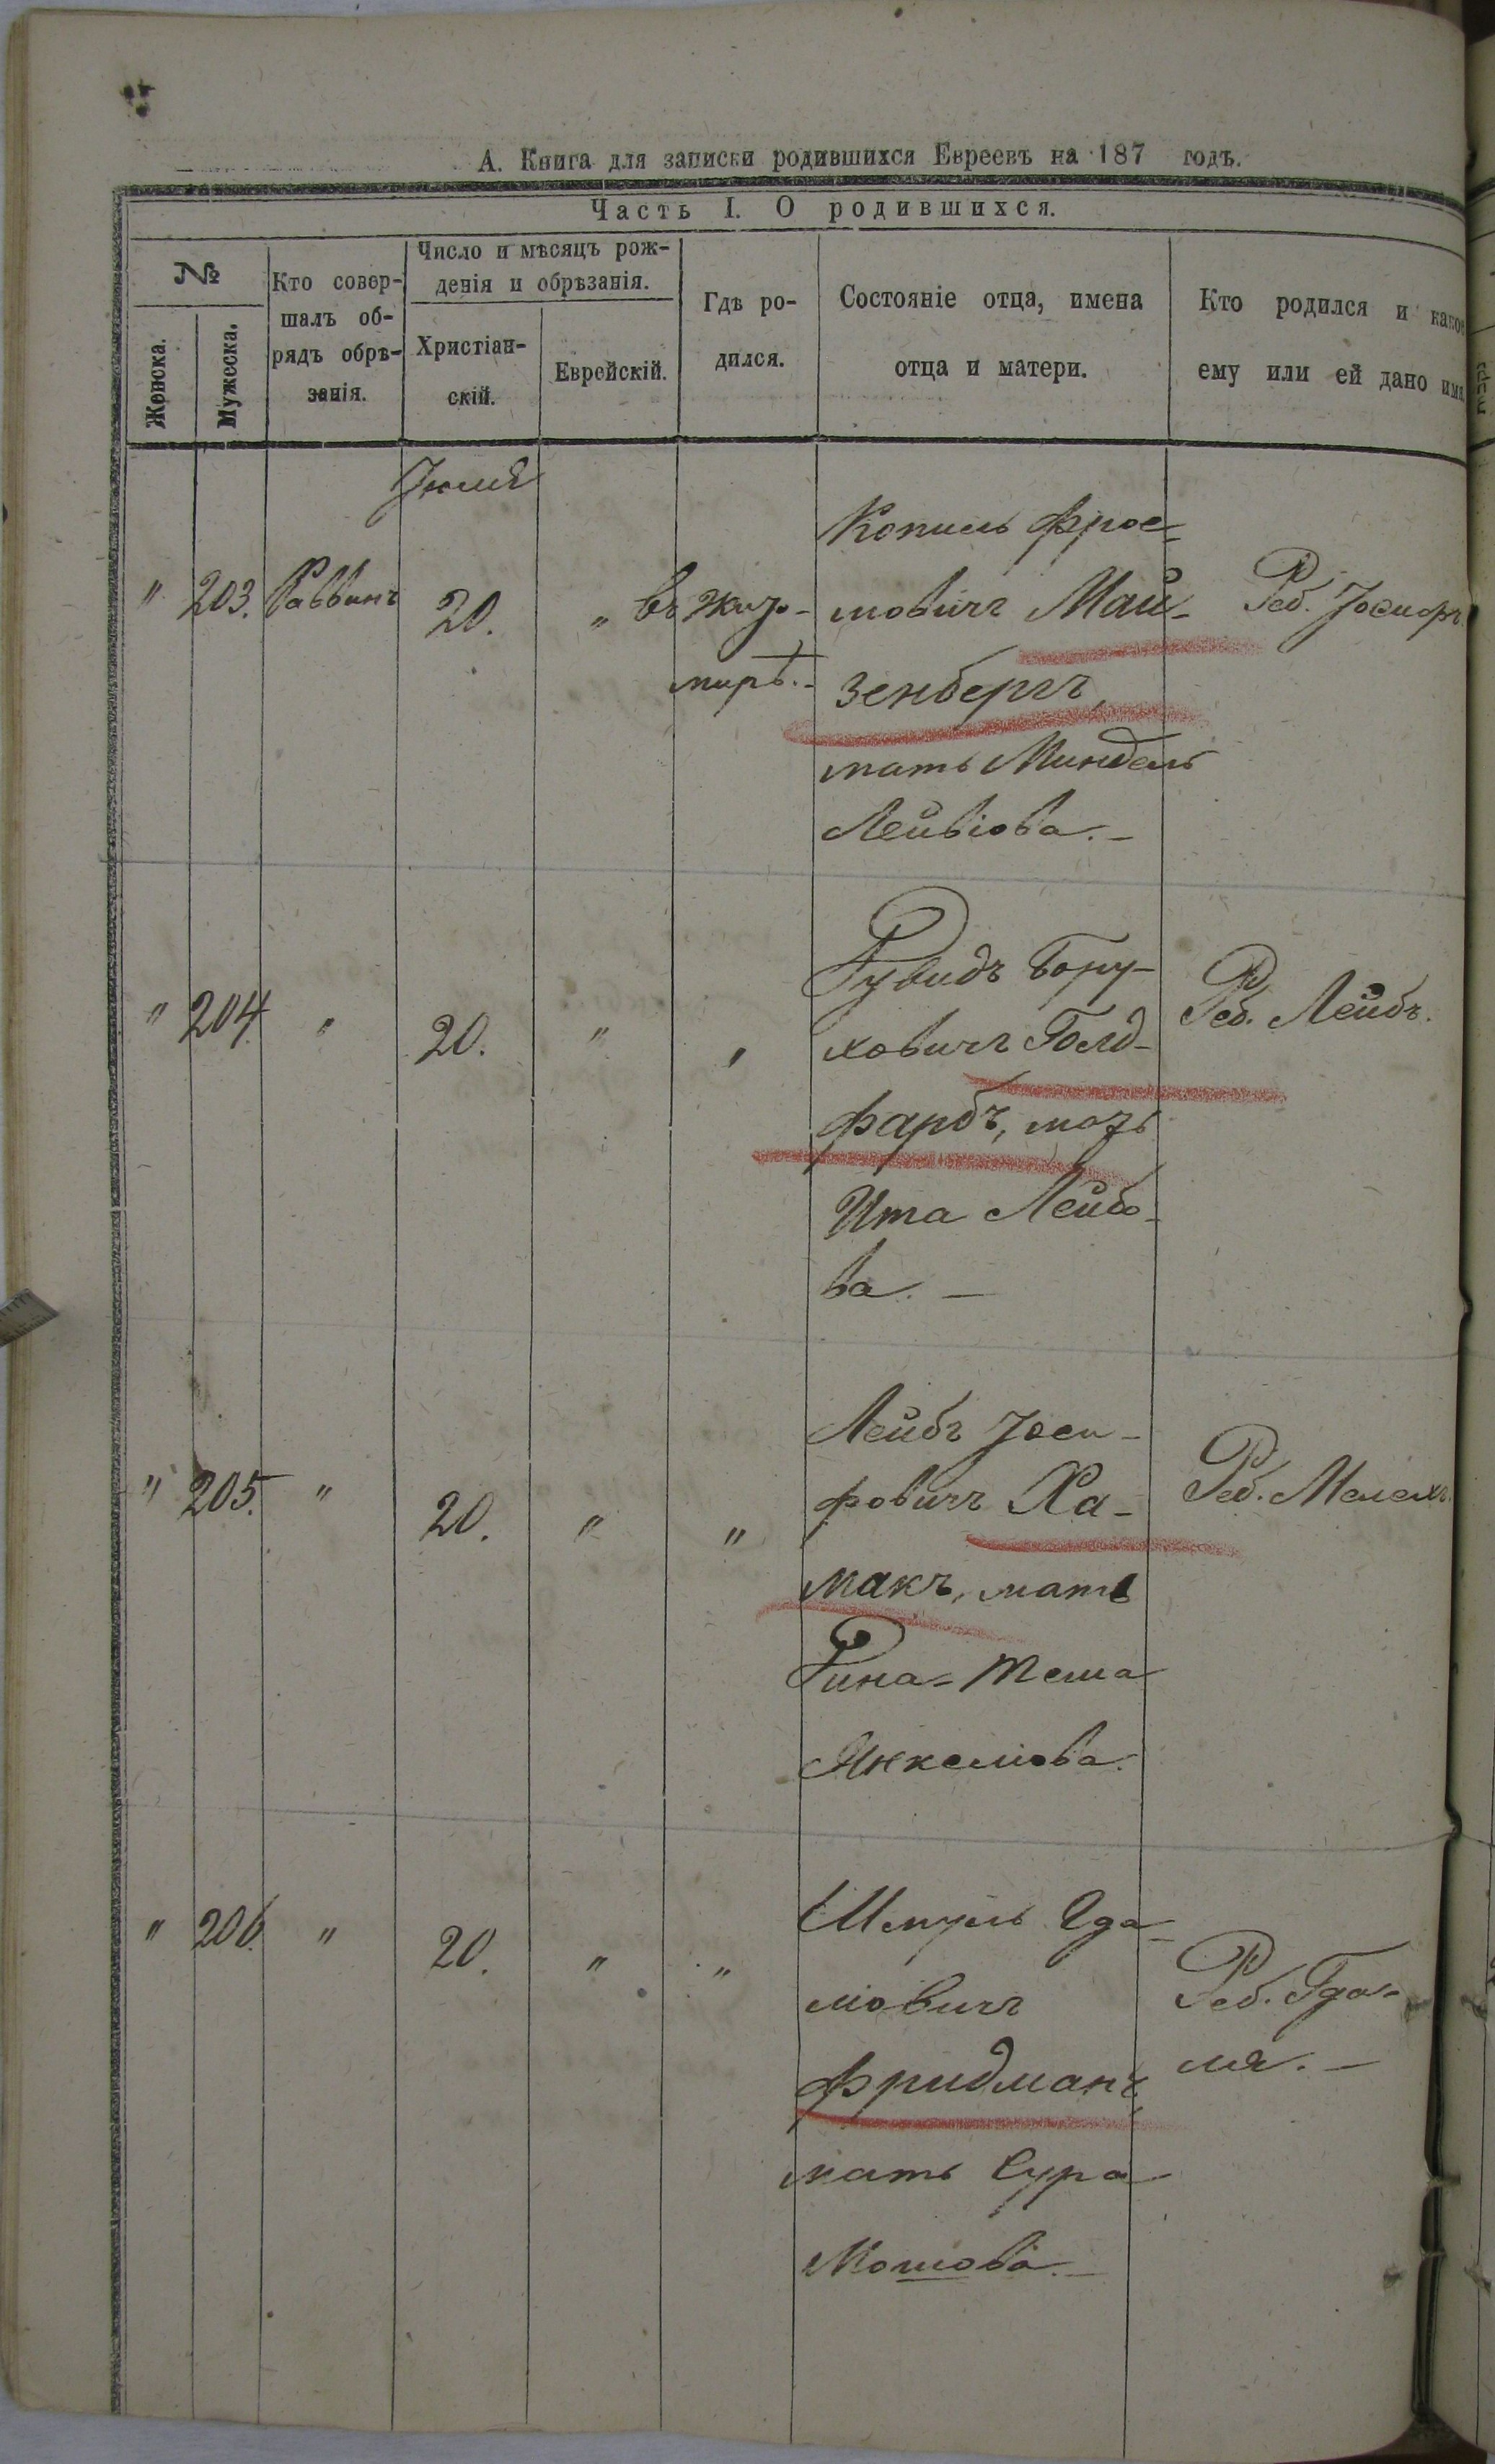 А. Книга для записки родившихся Евреевъ на 187 годъ.
Часть I. О родившихся.
№
Женска.
Мужеска.
Кто совер-
шалъ об-
рядъ обрѣ-
занія.
Число и мѣсяцъ рож-
денія и обрѣзанія.
Христіан-
скій.
Еврейскій.
Гдѣ ро-
дился.
Состояніе отца, имена
отца и матери.
Кто родился и какое
ему или ей дано имя
Іюля
" 203. Раввинъ 20. " въ Жито-
мирѣ.-
Копель Фрое-
мовичъ Май-
зенбергъ,
мать Миндель
Лейвіова.-
Реб. Іосифъ.
" 204 " 20. " "
Рувидъ Бору-
ховичъ Голд-
фарбъ, мать
Ита Лейбо-
ва. -
Реб. Лейбъ.
" 205. " 20. " "
Лейбъ Іоси-
фовичъ Ха-
макъ, мать
Рина-Теша
Янкеліова.
Реб. Мелехъ.
" 206. " 20. " "
Шмуль Гда-
ліовичъ
Фридманъ,
мать Сура
Мошова.-
Реб. Гда-
ля. -